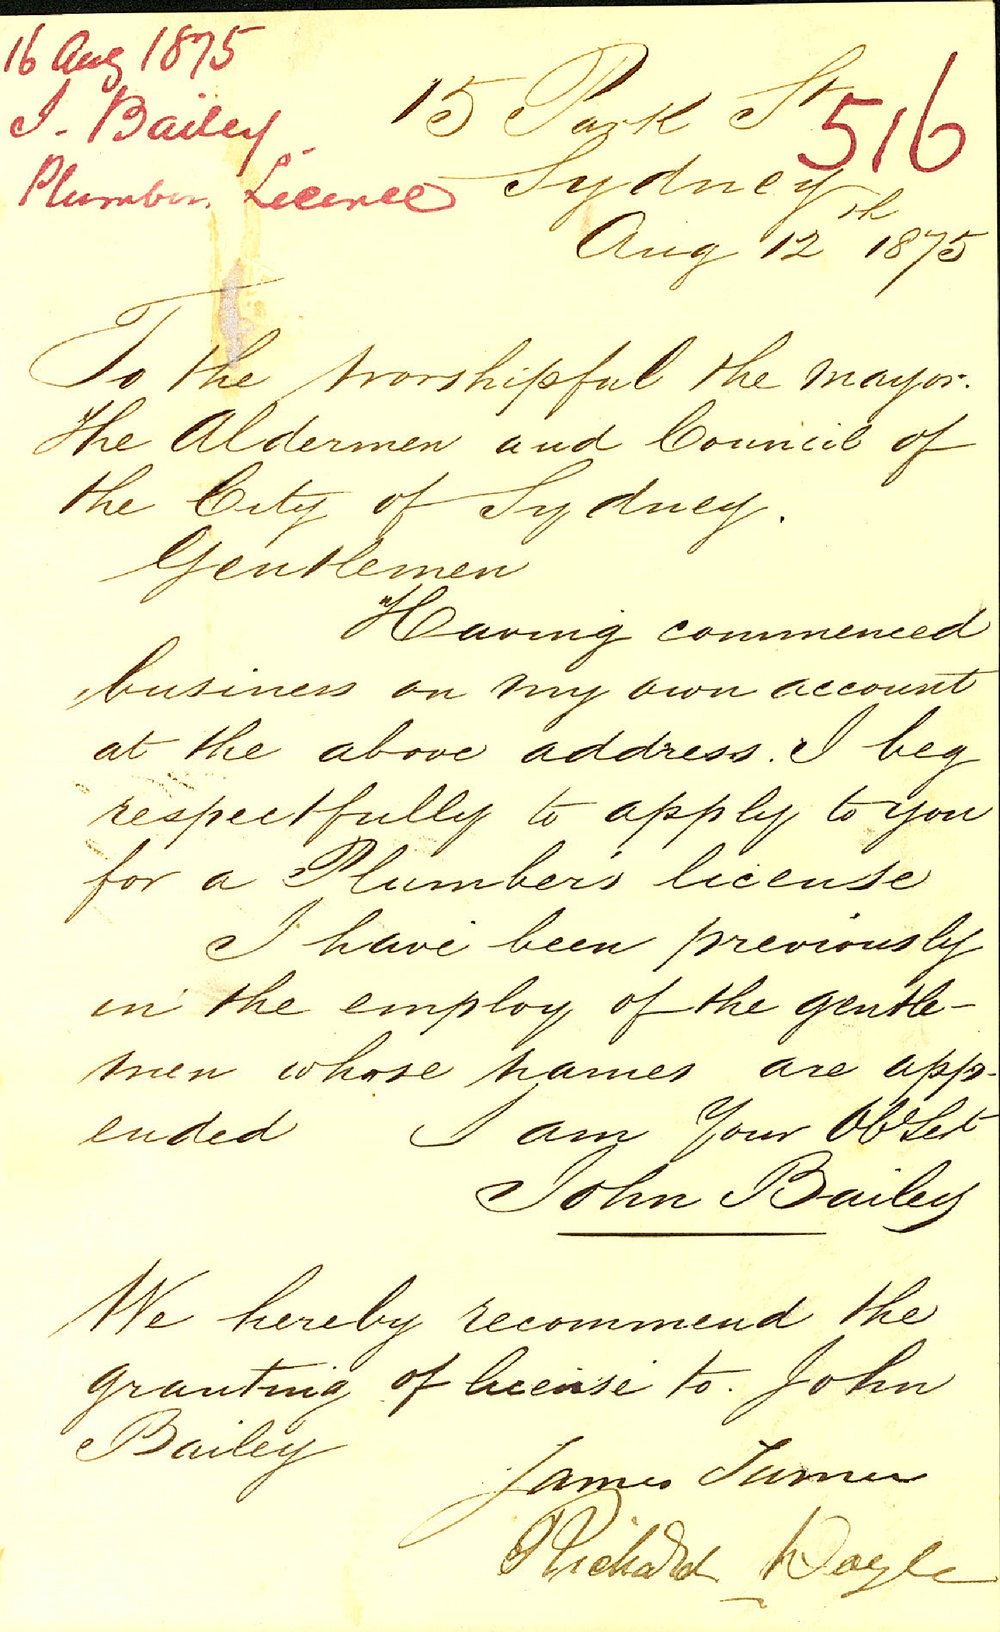 16 Aug 1875
J. Bailey
Plumbers Licence
516
15 Park St
Sydney
Aug 12th 1875
To the Worshipful the Mayor.
the Aldermen and Council of
the City of Sydney.
Gentlemen
Having commenced
business on my own account
at the above address. I beg
respectfully to apply to you
for a Plumber's license
I have been previously
in the employ of the gentle-
men whose names are app-
ended I am Your Ob Sert
John Bailey
We hereby recommend the
granting of license to. John
Bailey
James Turner
Richard Doyle